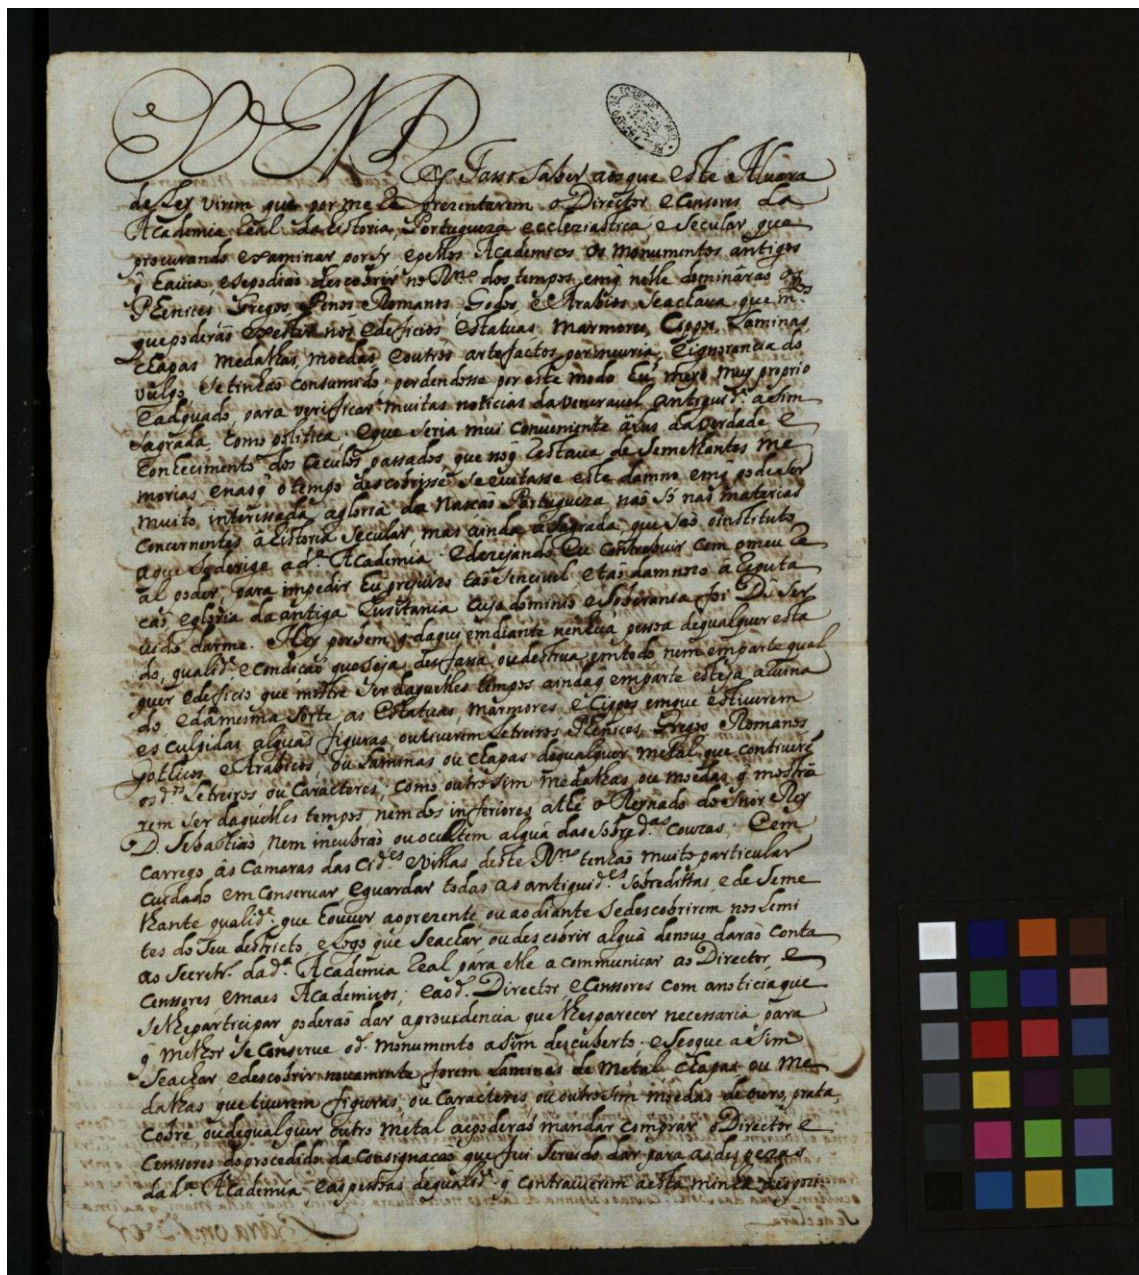 EV ELREY Fasso saber aos que este Alvara
de Ley virem que por me re prezentarem o Director e Censores da
Academia Real da Historia, Portugueza ecclesiastica, e Secular, que
procurando examinar por sy e pellos Academicos os monumentos antigos
q̃ havia e se podião descobrir no Rn.º dos tempos, em q̃ nelle dominárão os
Phenices, Gregos, Penos, Romanos, Godos, e Arabios, se achava que m.tos
que poderão existir nos edeficios, estatuas, marmores, cippos, Laminas,
chapas, medalhas, moedas, e outros artefactos, por incuria, e ignorancia do
vulgo, se tinhão consumido, perdendosse por este modo hũ meyo muy proprio
e adquado, para verificar muitas noticias da veneravel antiguid.e asim
sagrada, como politica. e que seria mui conveniente á lus da verdade e
conhecimento dos Ceculos passados que no q̃ restava de semelhantes me
morias e nas q̃ o tempo descobrisse se evitasse este damno em q̃ pode ser
muito interessada a gloria da Nasção Portugueza não só nas materias
concernentes á historia Secular, mas ainda á Sagrada, que são o instituto
a que se derige a d.a Academia. e dezejando Eu contribuir com o meu Re
al poder, para impedir hũ prejuizo tão sencivel e tão damnozo á reputa
ção, e gloria da antiga Lusitania cujo dominio e Soberania foi D.s ser
vido darme. Hey por bem q̃ daqui em diante nenhũa pessoa de qualquer esta
do, qualid.e e condição que seja, desfassa ou destrua em todo nem em parte qual
quer edeficio que mostre ser daquelles tempos ainda q̃ em parte esteja aruina
do e da mesma sorte, as Estatuas, marmores, e Cippos em que estiverem
esculpidas alguãs figuras, ou tiverem Letreiros Phenices, Gregos, Romanos
Gotticos, e Arabicos, ou Laminas, ou chapas de qualquer metal que contiverẽ
os d.tos Letreiros, ou caracteres, como outro sim medalhas, ou moedas q̃ mostra
rem ser daquelles tempos, nem dos inferiores athe o Reynado do Snor Rey
D. Sebastião, nem incubrão ou ocultem alguã das sobred.as couzas. E em
carrego ás Camaras das Cid.es e Villas deste Rn.º tenhão muito particular
cuidado em conservar, e guardar todas as antiguid.es sobredittas, e de seme
lhante qualid.e que houver ao prezente, ou ao diante se descobrirem nos Lemi
tes do seu destricto, e logo que se achar, ou descobrir alguã de novo darão conta
ao Secretr.º da d.a Academia Real para elle a communicar ao Director, e
Censores e maes Academicos; e ao d. Director e Censores com a noticia que
se lhe participar poderão dar a providencia que lhes parecer necessaria para
q̃ melhor se conserve o d. monumento asim descuberto. e se o que asim
se achar e descobrir novamente forem Laminas de metal, chapas ou me
dalhas que tiverem figuras, ou caracteres, ou outro sim moedas de ouro, prata,
cobre ou de qualquer outro metal as poderão mandar comprar o Director e
Censores do procedido da consignação que fui servido dar para as despezas
da d.a Academia e as pessoas de qualid.e q̃ contravierem a esta minha despozi-
se declara